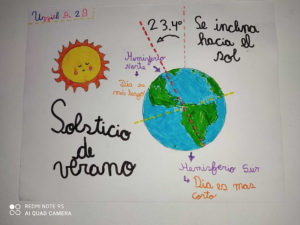 Uzziel A. 2B
23.4°
Se inclina
hacia el
sol
Hemisferio
Norte
Dia es
mas largo
Solsticio
de
verano
Hemisferio Sur
Dia es mas
corto
REDMI NOTE 9S
AI QUAD CAMERA